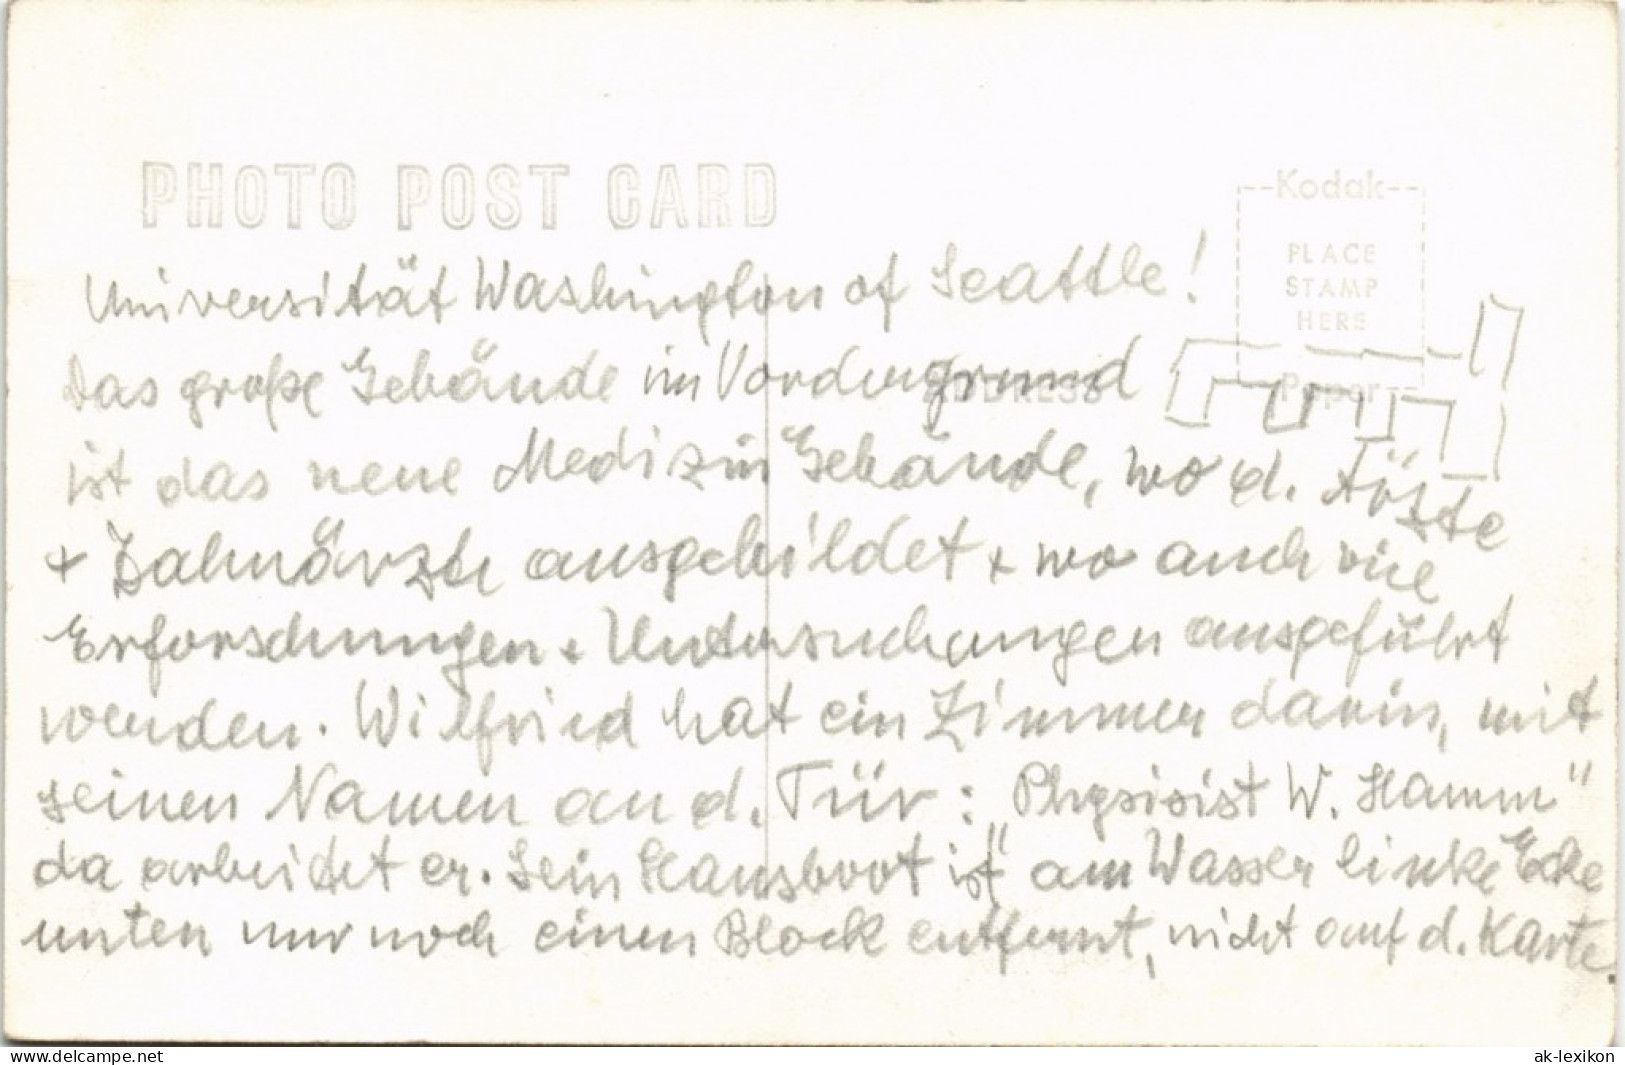 PHOTO POST CARD
Kodak
PLACE
STAMP
HERE
Paper
ADDRESS
Universität Washington of Seattle!
Das große Gebäude im Vordergrund
ist das neue Medizin Gebäude, wo d. Ärzte
+ Zahnärzte ausgebildet + wo auch viele
Erforschungen + Untersuchungen ausgeführt
werden. Wilfried hat ein Zimmer darin, mit
seinen Namen an d. Tür: "Physisist W. Hamm"
da arbeitet er. Sein Hausboot ist am Wasser linke Ecke
unten nur noch einen Block entfernt, nicht auf d. Karte.
www.delcampe.net
ak-lexikon